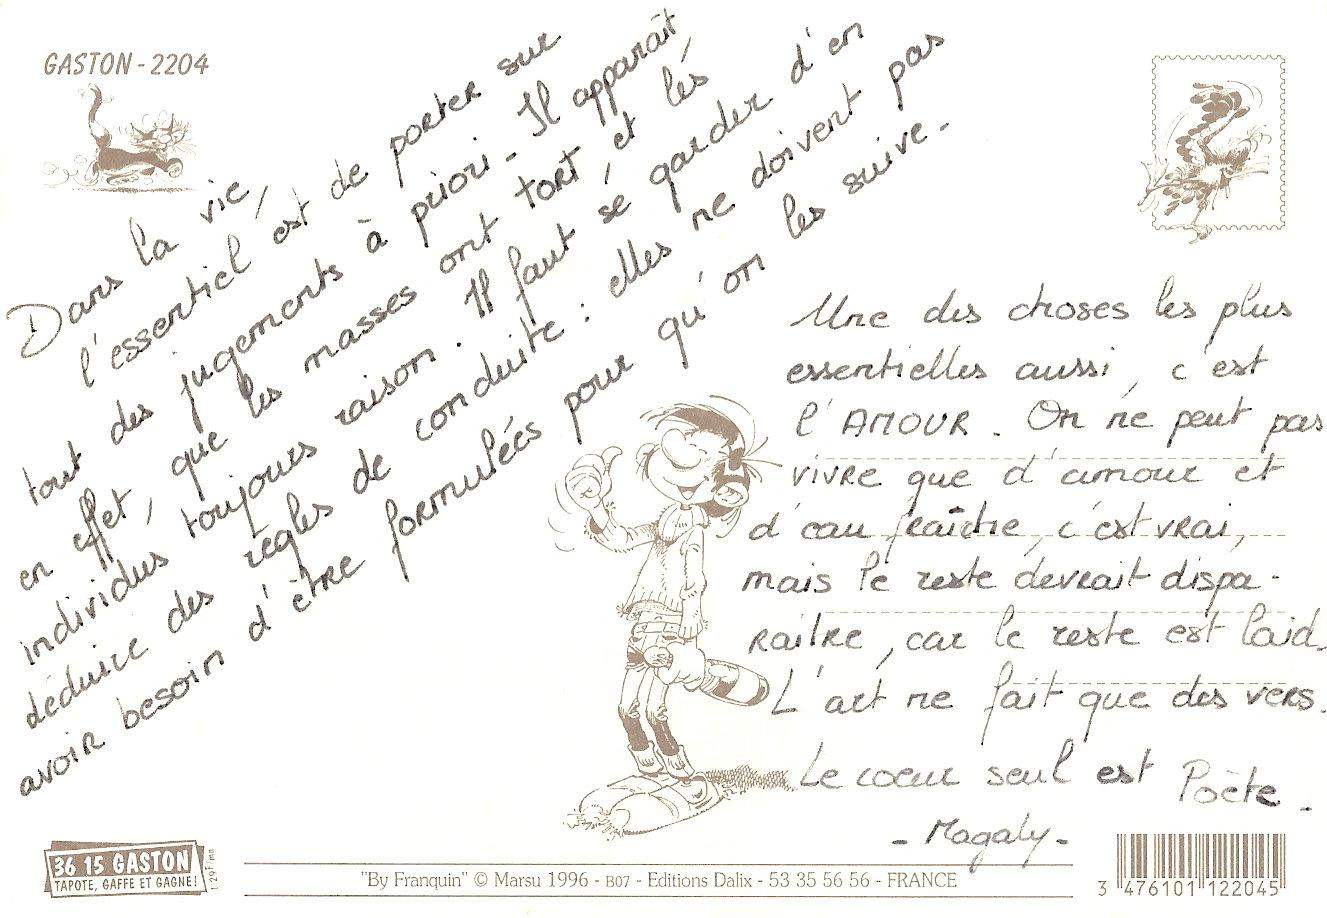 GASTON - 2204
Dans la vie,
l'essentiel est de porter sur
tout des jugements à priori - Il apparaît,
en effet, que les masses ont tort, et les
individus toujours raison. Il faut se garder d'en
déduire des règles de conduite : elles ne doivent pas
avoir besoin d'être formulées pour qu'on les suive -
Une des choses les plus
essentielles aussi, c'est
l'AMOUR. On ne peut pas
vivre que d'amour et
d'eau fraîche, c'est vrai,
mais le reste devrait dispa-
raitre, car le reste est laid.
L'art ne fait que des vers.
Le coeur seul est Poète -
- Magaly -
36 15 GASTON
TAPOTE, GAFFE ET GAGNE!
1'29 F/mn
"By Franquin" © Marsu 1996 - B07 - Editions Dalix - 53 35 56 56 - FRANCE
3 476101 122045